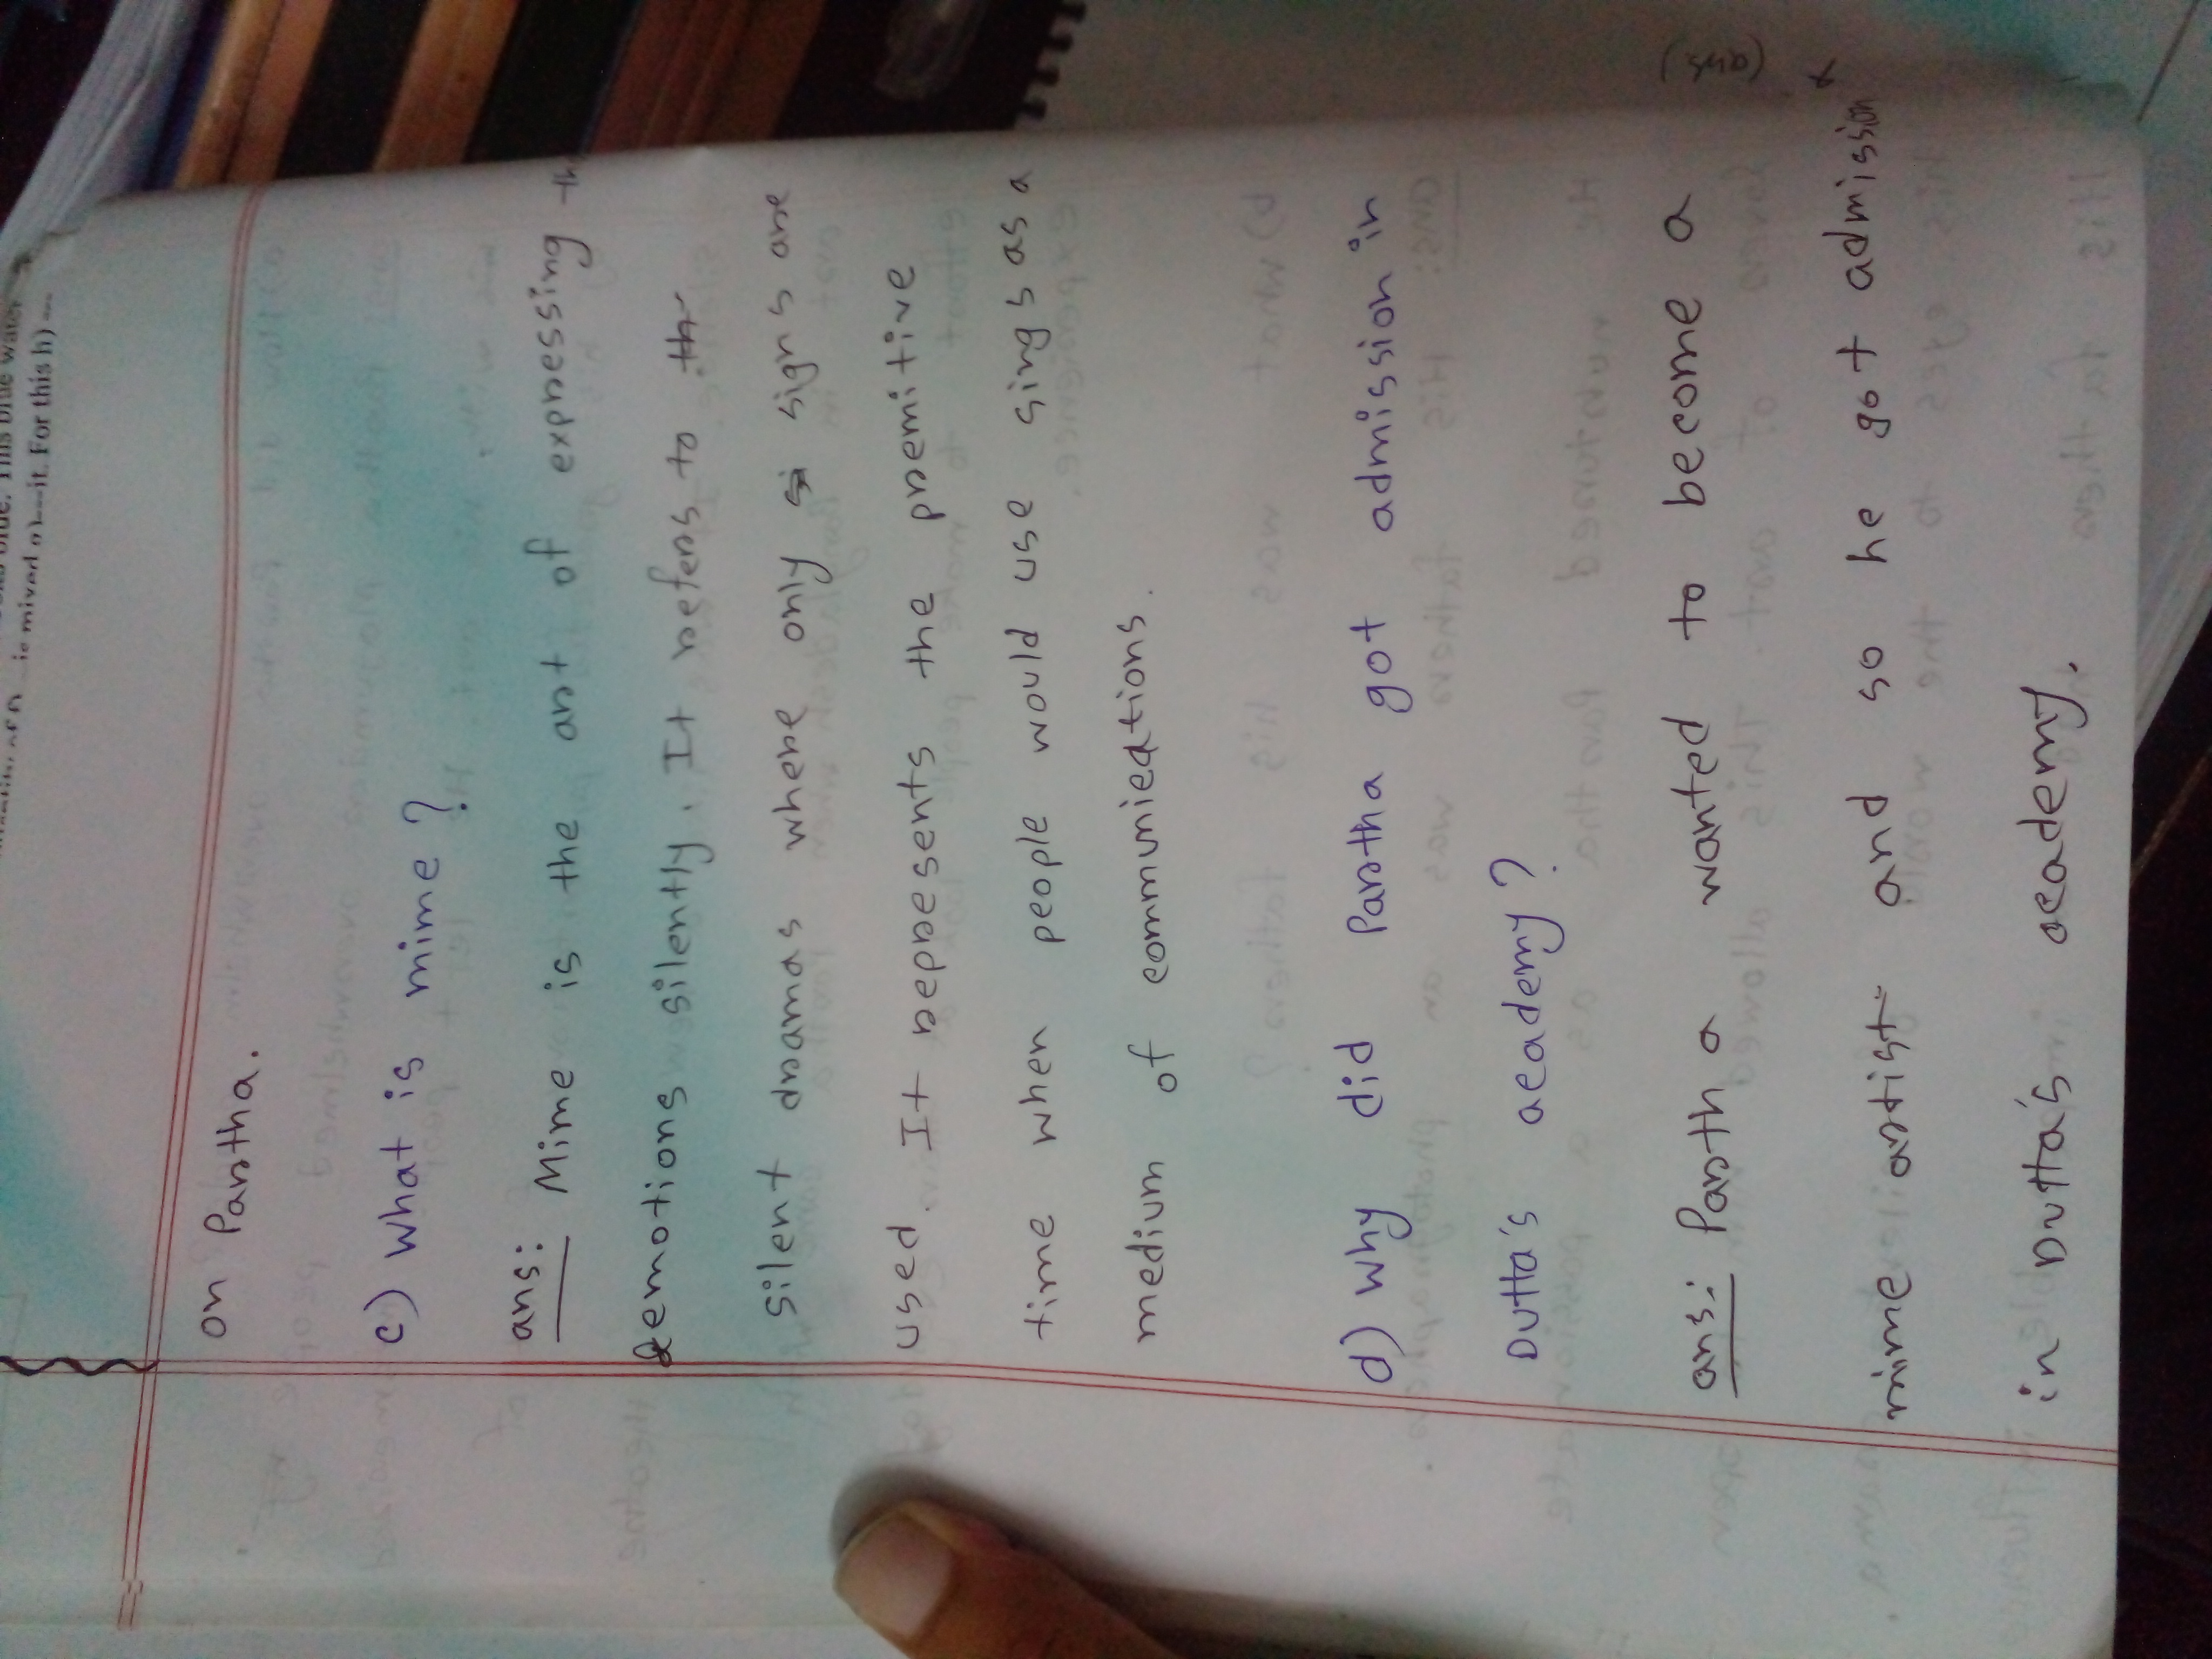 is mixed o)---it. For this h) ---
on Partha.
c) What is mime ?
ans: Mime is the art of expressing th
emotions silently. It refers to th
silent dramas where only si signs are
used. It reppesents the premitive
time when people would use sings as a
medium of communications.
d) Why did Partha got admission in
Dutta's academy ?
ans: Partha wanted to become a
mime artist and so he got admission
in Dutta's academy.